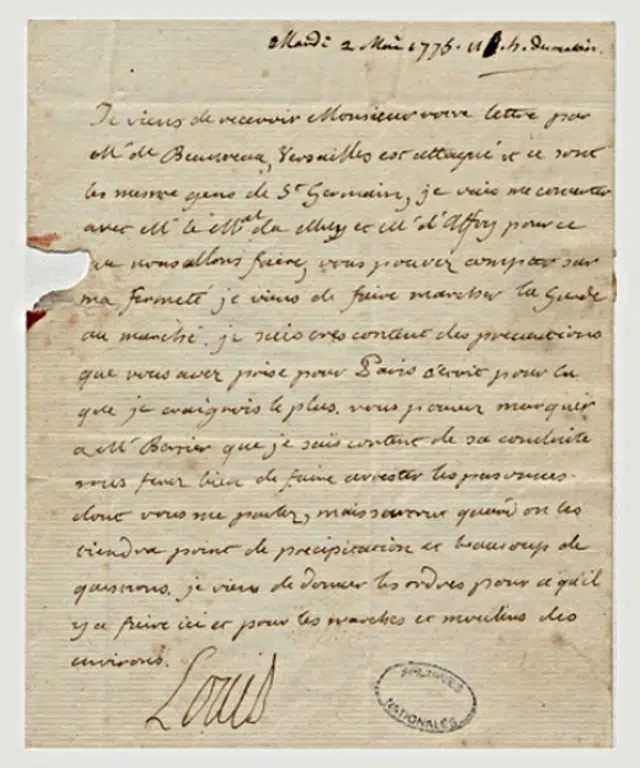 Mardi 2 Mai 1775. 11 h. du matin.
Je viens de recevoir Monsieur votre lettre par
Mr de Beauveau, Versailles est attaqué et ce sont
les mesme gens de St Germain, je vais me concerter
avec Mr le Mal du Muy et Mr d'Affry pour ce
que nous allons faire, vous pouvez compter sur
ma fermeté je viens de faire marcher la Garde
au marché. je suis tres content des precautions
que vous avez prise pour Paris c'etoit pour la
que je craignois le plus. vous pouvez marquer
a Mr Bertier que je suis content de sa conduite
vous ferez bien de faire arrester les personnes
dont vous me parlez, mais surtout quand on les
tiendra point de précipitation et beaucoup de
questions. je viens de donner les ordres pour ce qu'il
y a faire ici et pour les marches et moulins des
environs.
Louis
ARCHIVES
NATIONALES